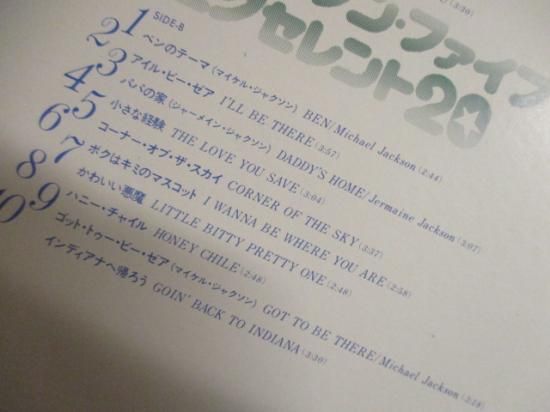 ソン・ファイブ
エクセレント20
SIDE-B
1 ベンのテーマ(マイケル・ジャクソン) BEN/Michael Jackson (2:44)
2 アイル・ビー・ゼア I'LL BE THERE (3:57)
3 パパの家(ジャーメイン・ジャクソン) DADDY'S HOME/Jermaine Jackson (3:07)
4 小さな経験 THE LOVE YOU SAVE (3:04)
5 コーナー・オブ・ザ・スカイ CORNER OF THE SKY (3:37)
6 ボクはキミのマスコット I WANNA BE WHERE YOU ARE (2:58)
7 かわいい悪魔 LITTLE BITTY PRETTY ONE (2:48)
8 ハニー・チャイル HONEY CHILE (2:48)
9 ゴット・トゥー・ビー・ゼア(マイケル・ジャクソン) GOT TO BE THERE/Michael Jackson
10 インディアナへ帰ろう GOIN' BACK TO INDIANA (3:30)